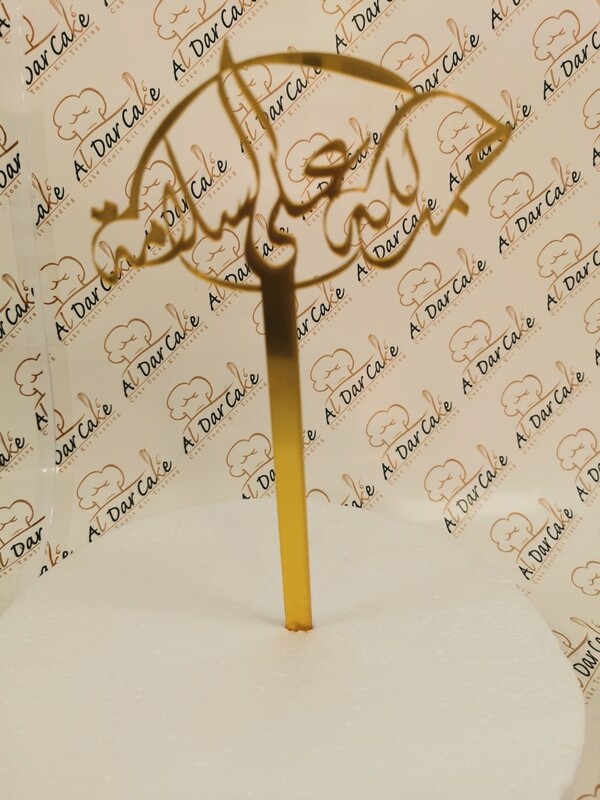 الحمد لله على سلامة
Al Dar Cake
Cake Tools Kit Trading